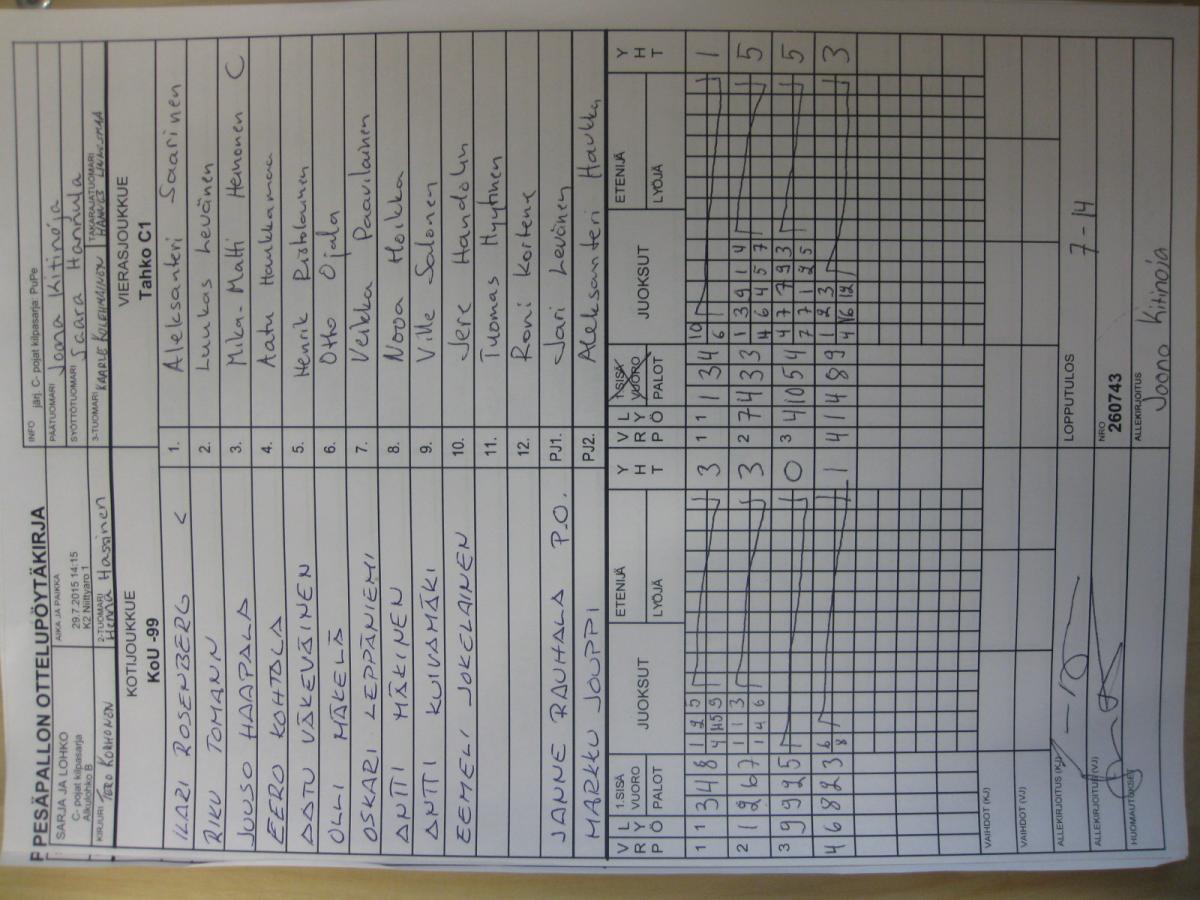 PESÄPALLON OTTELUPÖYTÄKIRJA
INFO järj. C- pojat kilpasarja: PuPe
SARJA JA LOHKO
C- pojat kilpasarja
Alkulohko B
AIKA JA PAIKKA
29.7.2015 14:15
K2 Niittyaro 1
PÄÄTUOMARI Joona Kitinoja
SYÖTTÖTUOMARI Saara Hannula
KIRJURI Tero Korhonen
2-TUOMARI Henna Hassinen
3-TUOMARI KAARLE KOLEHMAINEN
TAKARAJATUOMARI HANNES
KOTIJOUKKUE
KoU -99
VIERASJOUKKUE
Tahko C1
ILARI ROSENBERG < 1. Aleksanteri Saarinen
RIKU TOMANN 2. Luukas Leväinen
JUUSO HAAPALA 3. Mika-Matti Hemonen C
EERO KOHTALA 4. Aatu Haukkamaa
AATU VÄKEVÄINEN 5. Henrik Ristolainen
OLLI MÄKELÄ 6. Otto Ojala
OSKARI LEPPÄNIEMI 7. Veikka Paavilainen
ANTTI MÄKINEN 8. Nova Hoikka
ANTTI KUIVAMÄKI 9. Ville Salonen
EEMELI JOKELAINEN 10. Jere Handolin
11. Tuomas Hyytinen
12. Roni Kortene
JANNE RAUHALA P.O. PJ1. Jari Leväinen
MARKKU JOUPPI PJ2. Aleksanteri Haukka
V L 1.SISÄ JUOKSUT ETENIJÄ Y V L 1.SISÄ JUOKSUT ETENIJÄ Y
R Y VUORO H R Y VUORO H
P Ö PALOT LYÖJÄ T P Ö PALOT LYÖJÄ T
1 1 3 4 8 1 2 5 3 1 1 1 3 4 10 1
4 5 9 6
2 1 2 6 7 1 1 3 3 2 7 4 3 3 1 3 9 1 4 5
1 4 6 4 6 4 5 7
3 9 9 2 5 0 3 4 10 5 4 4 7 7 9 3 5
7 7 1 2 5
4 6 8 2 3 6 1 4 1 4 8 9 1 2 3 3
8 4 6 12
VAIHDOT (KJ)
VAIHDOT (VJ)
ALLEKIRJOITUS (KJ)
LOPPUTULOS 7-14
ALLEKIRJOITUS (VJ)
NRO
260743
HUOMAUTUKSET
ALLEKIRJOITUS
Joona Kitinoja